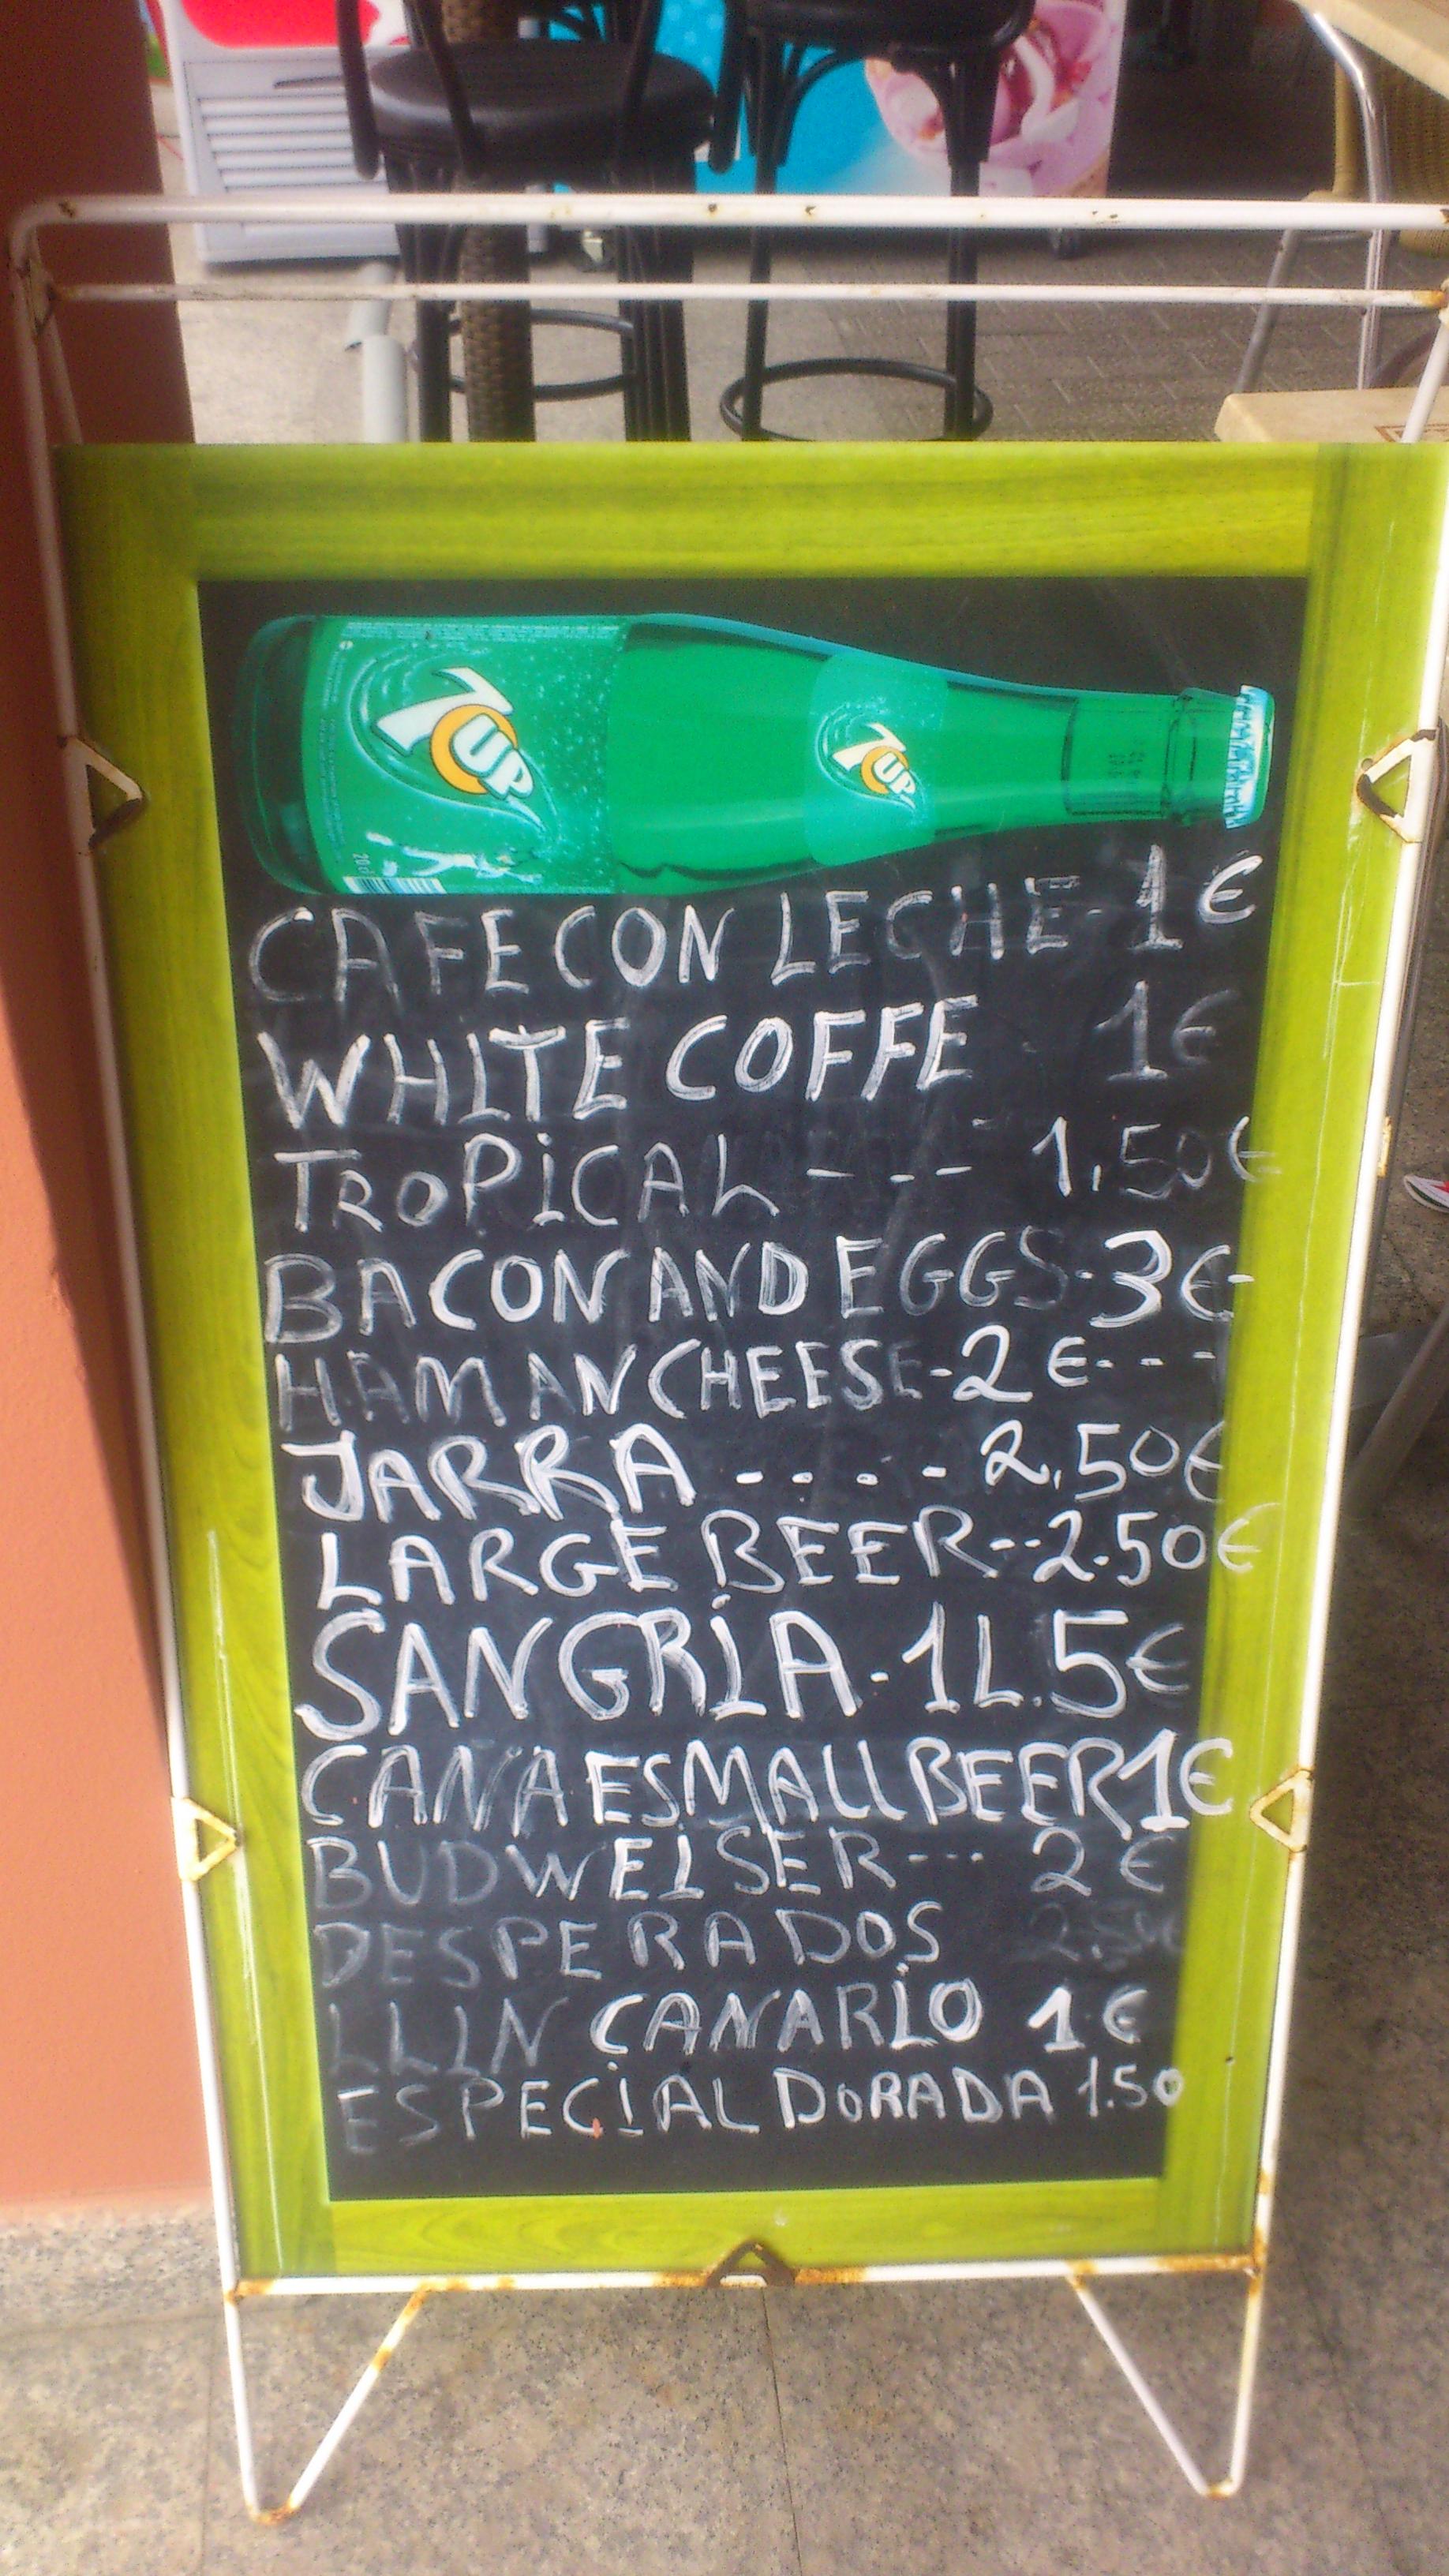 7UP 7UP
20 cl
CAFE CON LECHE - 1 €
WHITE COFFE 1 €
TROPICAL - - - 1,50 €
BACON AND EGGS - 3 € -
HAM AN CHEESE - 2 € - - -
JARRA - - - - 2,50 €
LARGE BEER - - 2.50 €
SANGRIA - 1L. 5 €
CANA ESMALL BEER 1 €
BUDWEISER - - - 2 €
DESPERADOS
LLIN CANARIO 1 €
ESPECIAL DORADA 1.50